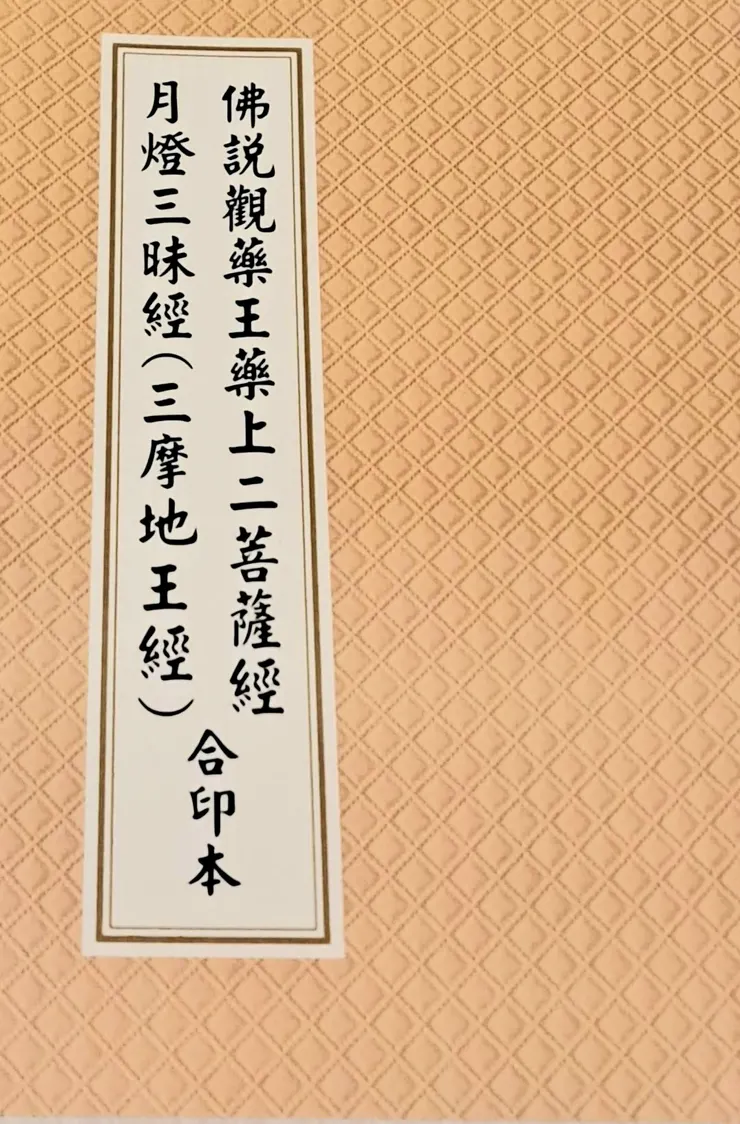 佛説觀藥王藥上二菩薩經
月燈三昧經(三摩地王經)
合印本